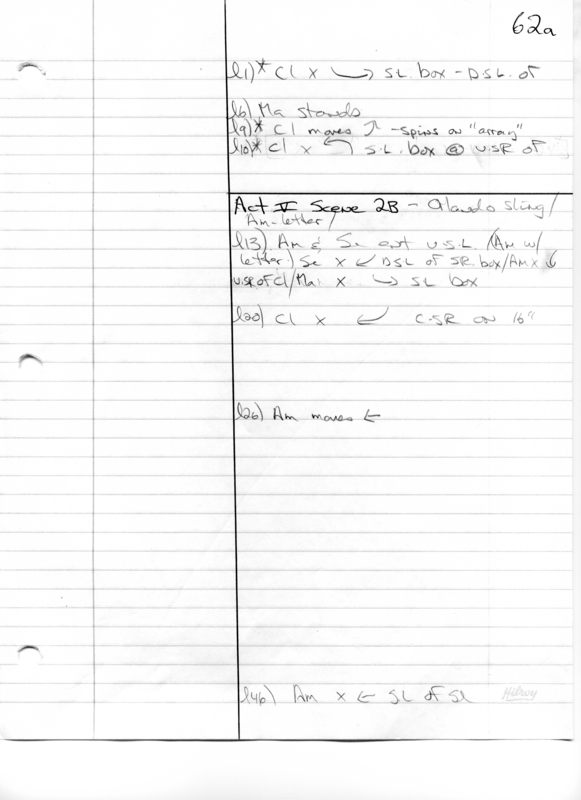 62a
l1)* Cl x ⤷ S.L. box - D.S.L. of
l6) Ma stands
l9)* Cl moves ↗ - spins on "array"
l10)* Cl x ↰ S.L. box @ U.SR of
Act V Scene 2B - Orlando Sling/
Am-letter/
l13) Am & Se ent U.S.L. (Am w/
letter) Se x ↙ DSL of SR. box/Am x ↓
U.SR of Cl/Ma x ⤷ SL box
l20) Cl x ↙ C-SR on 16"
l26) Am moves ←
l46) Am x ← SL of
Hilroy